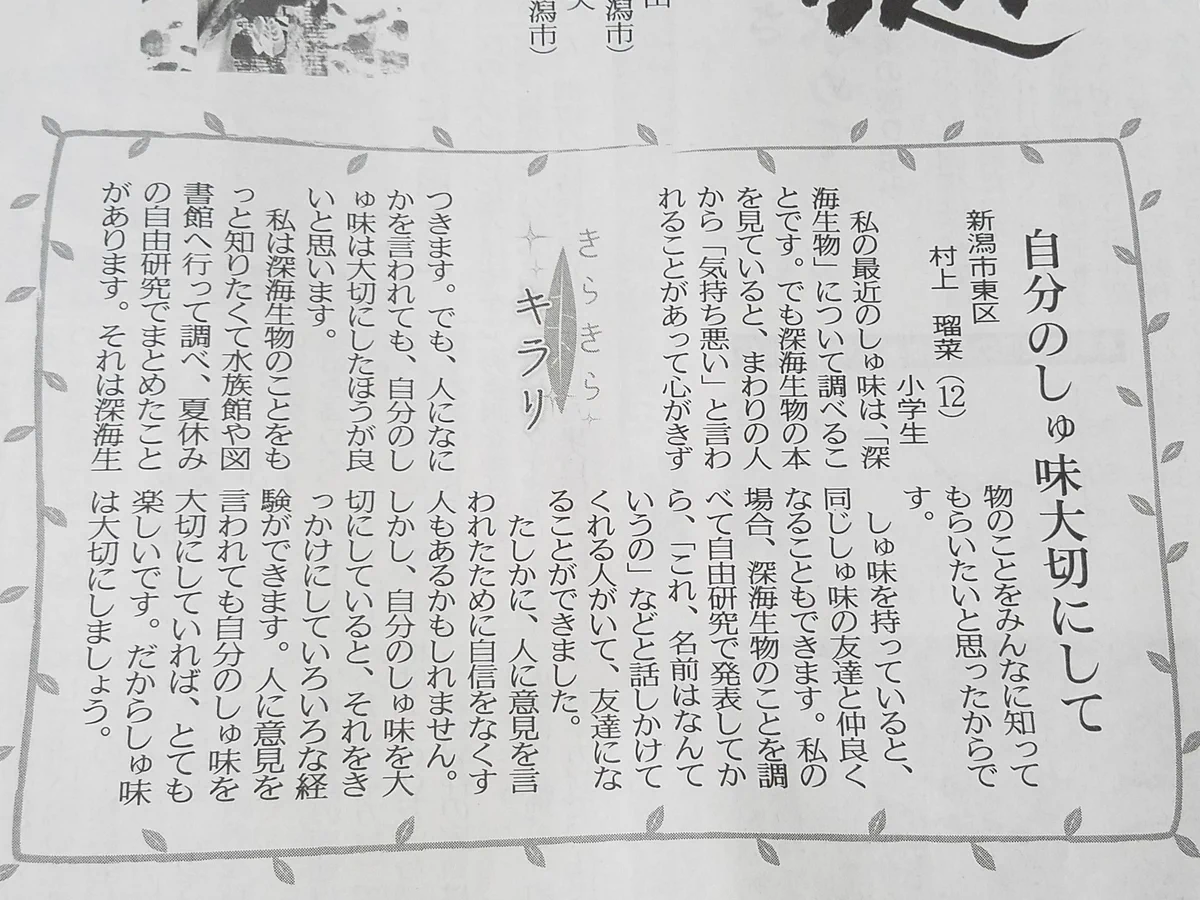 潟市）
潟市）
自分のしゅ味大切にして
新潟市東区
村上　瑠菜（12）
小学生
私の最近のしゅ味は、「深
海生物」について調べるこ
とです。でも深海生物の本
を見ていると、まわりの人
から「気持ち悪い」と言わ
れることがあって心がきず
きらきら
キラリ
つきます。でも、人になに
かを言われても、自分のし
ゅ味は大切にしたほうが良
いと思います。
私は深海生物のことをも
っと知りたくて水族館や図
書館へ行って調べ、夏休み
の自由研究でまとめたこと
があります。それは深海生
物のことをみんなに知って
もらいたいと思ったからで
す。
しゅ味を持っていると、
同じしゅ味の友達と仲良く
なることもできます。私の
場合、深海生物のことを調
べて自由研究で発表してか
ら、「これ、名前はなんて
いうの」などと話しかけて
くれる人がいて、友達にな
ることができました。
たしかに、人に意見を言
われたために自信をなくす
人もあるかもしれません。
しかし、自分のしゅ味を大
切にしていると、それをき
っかけにしていろいろな経
験ができます。人に意見を
言われても自分のしゅ味を
大切にしていれば、とても
楽しいです。だからしゅ味
は大切にしましょう。